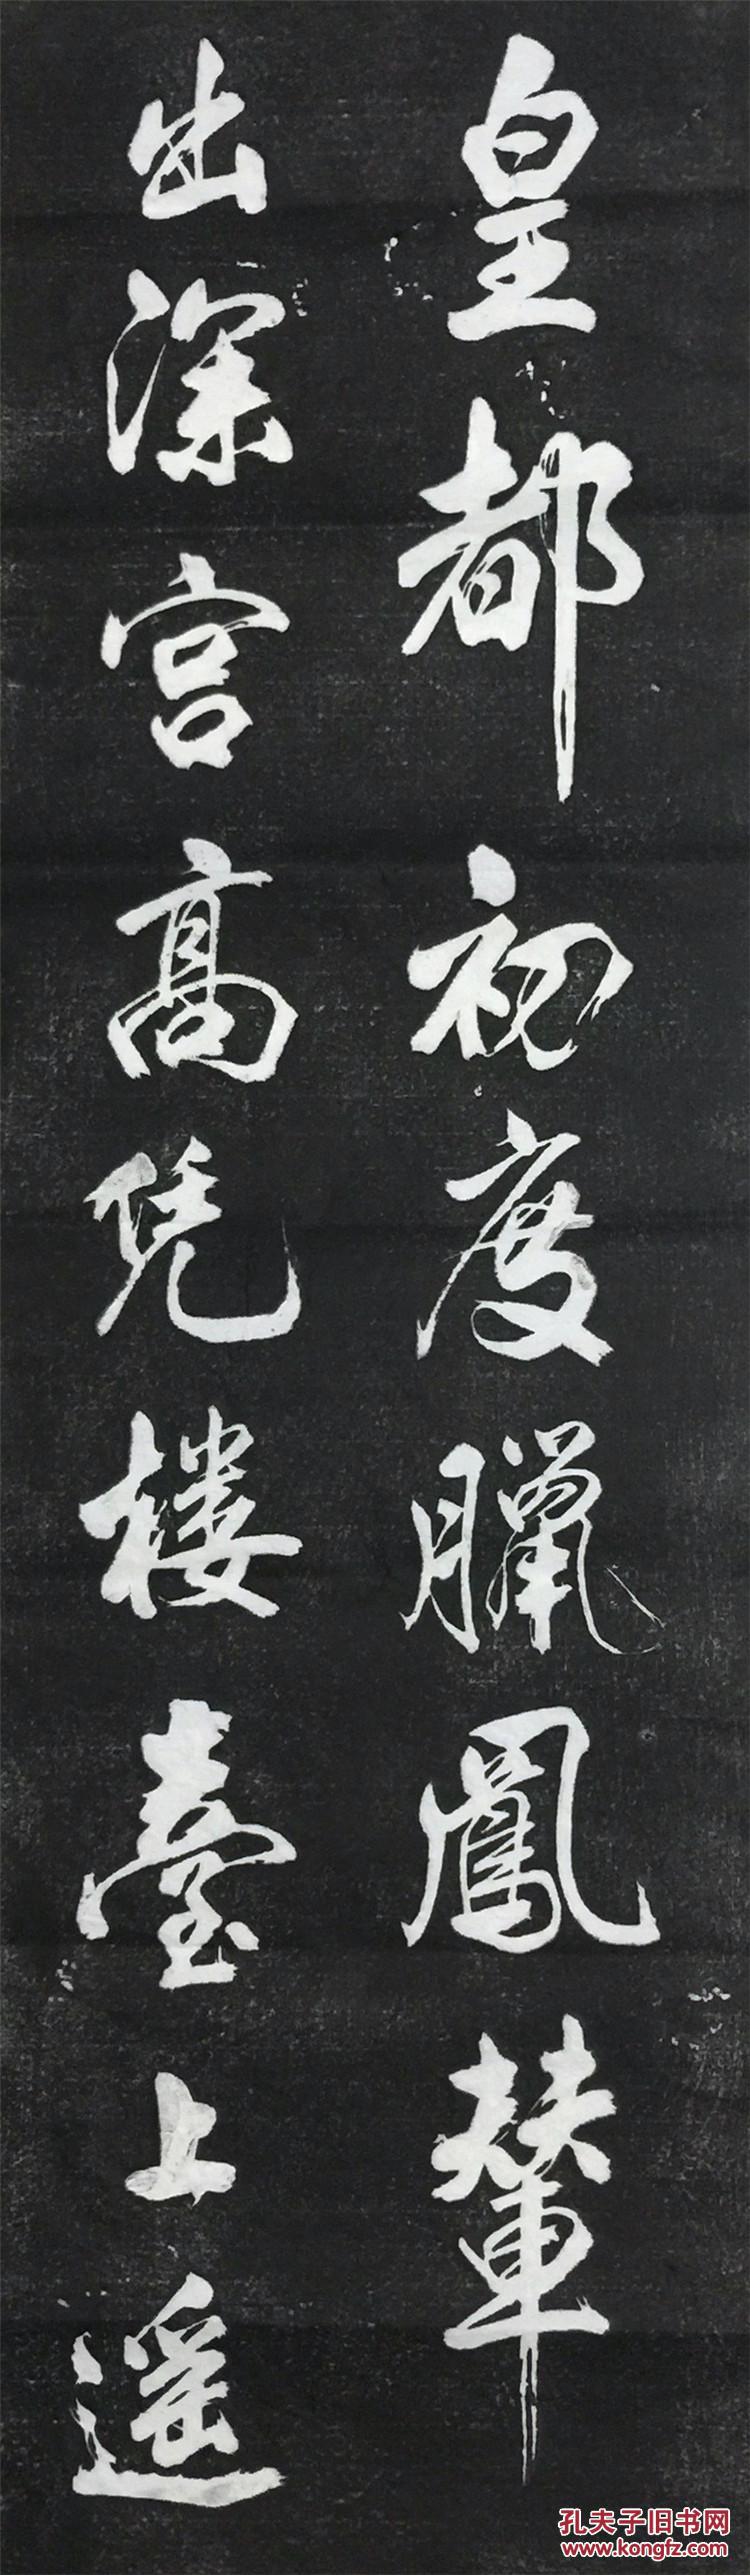 皇都初度臘鳳輦
出深宮高凭楼臺上遥
孔夫子旧书网
www.kongfz.com